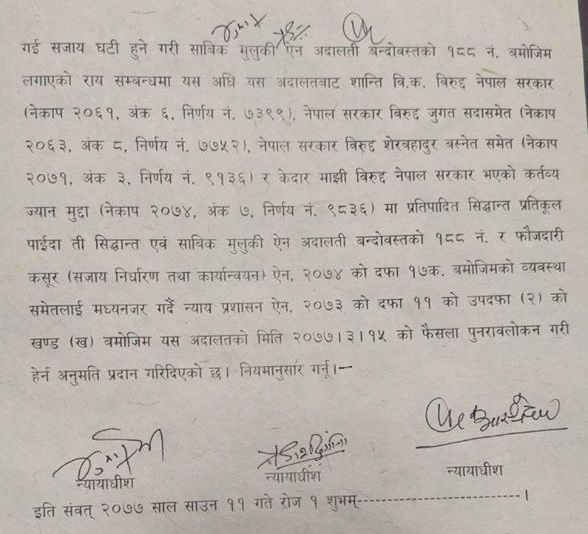 गई सजाय घटी हुने गरी साबिक मुलुकी ऐन अदालती बन्दोवस्तको १८८ नं. बमोजिम
लगाएको राय सम्बन्धमा यस अघि यस अदालतबाट शान्ति वि.क. विरुद्ध नेपाल सरकार
(नेकाप २०६१, अंक ६, निर्णय नं. ७३९९), नेपाल सरकार विरुद्ध जुगत सदासमेत (नेकाप
२०६३, अंक ८, निर्णय नं. ७७५२), नेपाल सरकार विरुद्ध शेरबहादुर बस्नेत समेत (नेकाप
२०७१, अंक ३, निर्णय नं. ९१३६) र केदार माझी विरुद्ध नेपाल सरकार भएको कर्तव्य
ज्यान मुद्दा (नेकाप २०७४, अंक ७, निर्णय नं. ९८३६) मा प्रतिपादित सिद्धान्त प्रतिकूल
पाईदा ती सिद्धान्त एवं साबिक मुलुकी ऐन अदालती बन्दोवस्तको १८८ नं. र फौजदारी
कसूर (सजाय निर्धारण तथा कार्यान्वयन) ऐन, २०७४ को दफा १७क. बमोजिमको व्यवस्था
समेतलाई मध्यनजर गर्दै न्याय प्रशासन ऐन, २०७३ को दफा ११ को उपदफा (२) को
खण्ड (ख) बमोजिम यस अदालतको मिति २०७७।३।१५ को फैसला पुनरावलोकन गरी
हेर्न अनुमति प्रदान गरिदिएको छ। नियमानुसार गर्नू।–
न्यायाधीश न्यायाधीश न्यायाधीश
इति संवत् २०७७ साल साउन ११ गते रोज १ शुभम्------------------------।